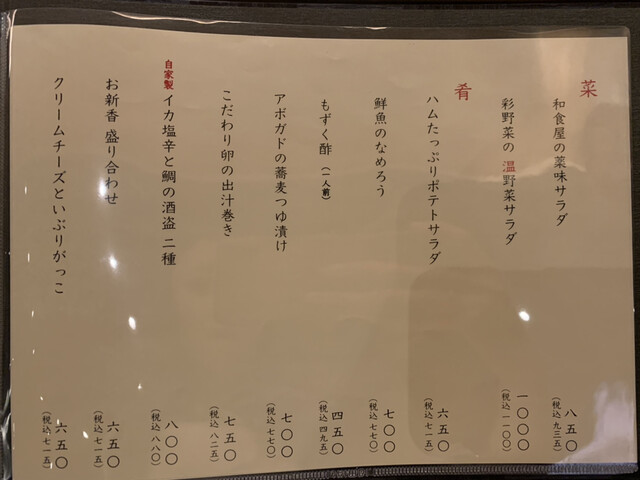 菜
和食屋の薬味サラダ 八五〇
(税込 九三五)
彩野菜の 温野菜サラダ 一〇〇〇
(税込 一一〇〇)
肴
ハムたっぷりポテトサラダ 六五〇
(税込 七一五)
鮮魚のなめろう 七〇〇
(税込 七七〇)
もずく酢 (一人前) 四五〇
(税込 四九五)
アボガドの蕎麦つゆ漬け 七〇〇
(税込 七七〇)
こだわり卵の出汁巻き 七五〇
(税込 八二五)
自家製 イカ塩辛と鯛の酒盗 二種 八〇〇
(税込 八八〇)
お新香 盛り合わせ 六五〇
(税込 七一五)
クリームチーズといぶりがっこ 六五〇
(税込 七一五)